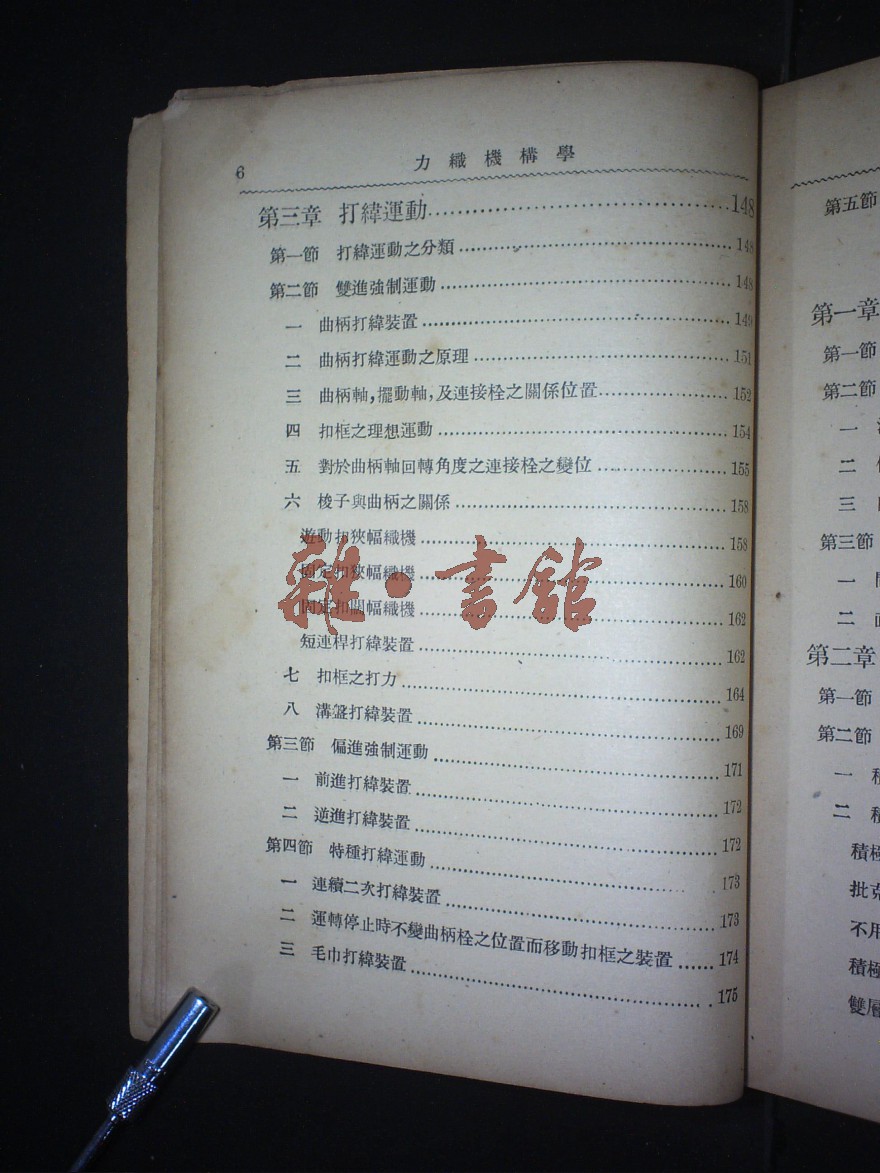 6
力織機構學
第三章 打緯運動 148
第一節 打緯運動之分類 148
第二節 雙進強制運動 148
一 曲柄打緯裝置 149
二 曲柄打緯運動之原理 151
三 曲柄軸,擺動軸,及連接栓之關係位置 152
四 扣框之理想運動 154
五 對於曲柄軸回轉角度之連接栓之變位 155
六 梭子與曲柄之關係 158
遊動扣狹幅織機 158
固定扣狹幅織機 160
固定扣闊幅織機 162
短連桿打緯裝置 162
七 扣框之打力 164
八 溝盤打緯裝置 169
第三節 偏進強制運動 171
一 前進打緯裝置 172
二 逆進打緯裝置 172
第四節 特種打緯運動 173
一 連續二次打緯裝置 173
二 運轉停止時不變曲柄栓之位置而移動扣框之裝置 174
三 毛巾打緯裝置 175
雜·書館
第五節
第一章
第一節
第二節
一
二
三
第三節
一
二
第二章
第一節
第二節
一
二 積
積極
批克
不用
積極
雙層